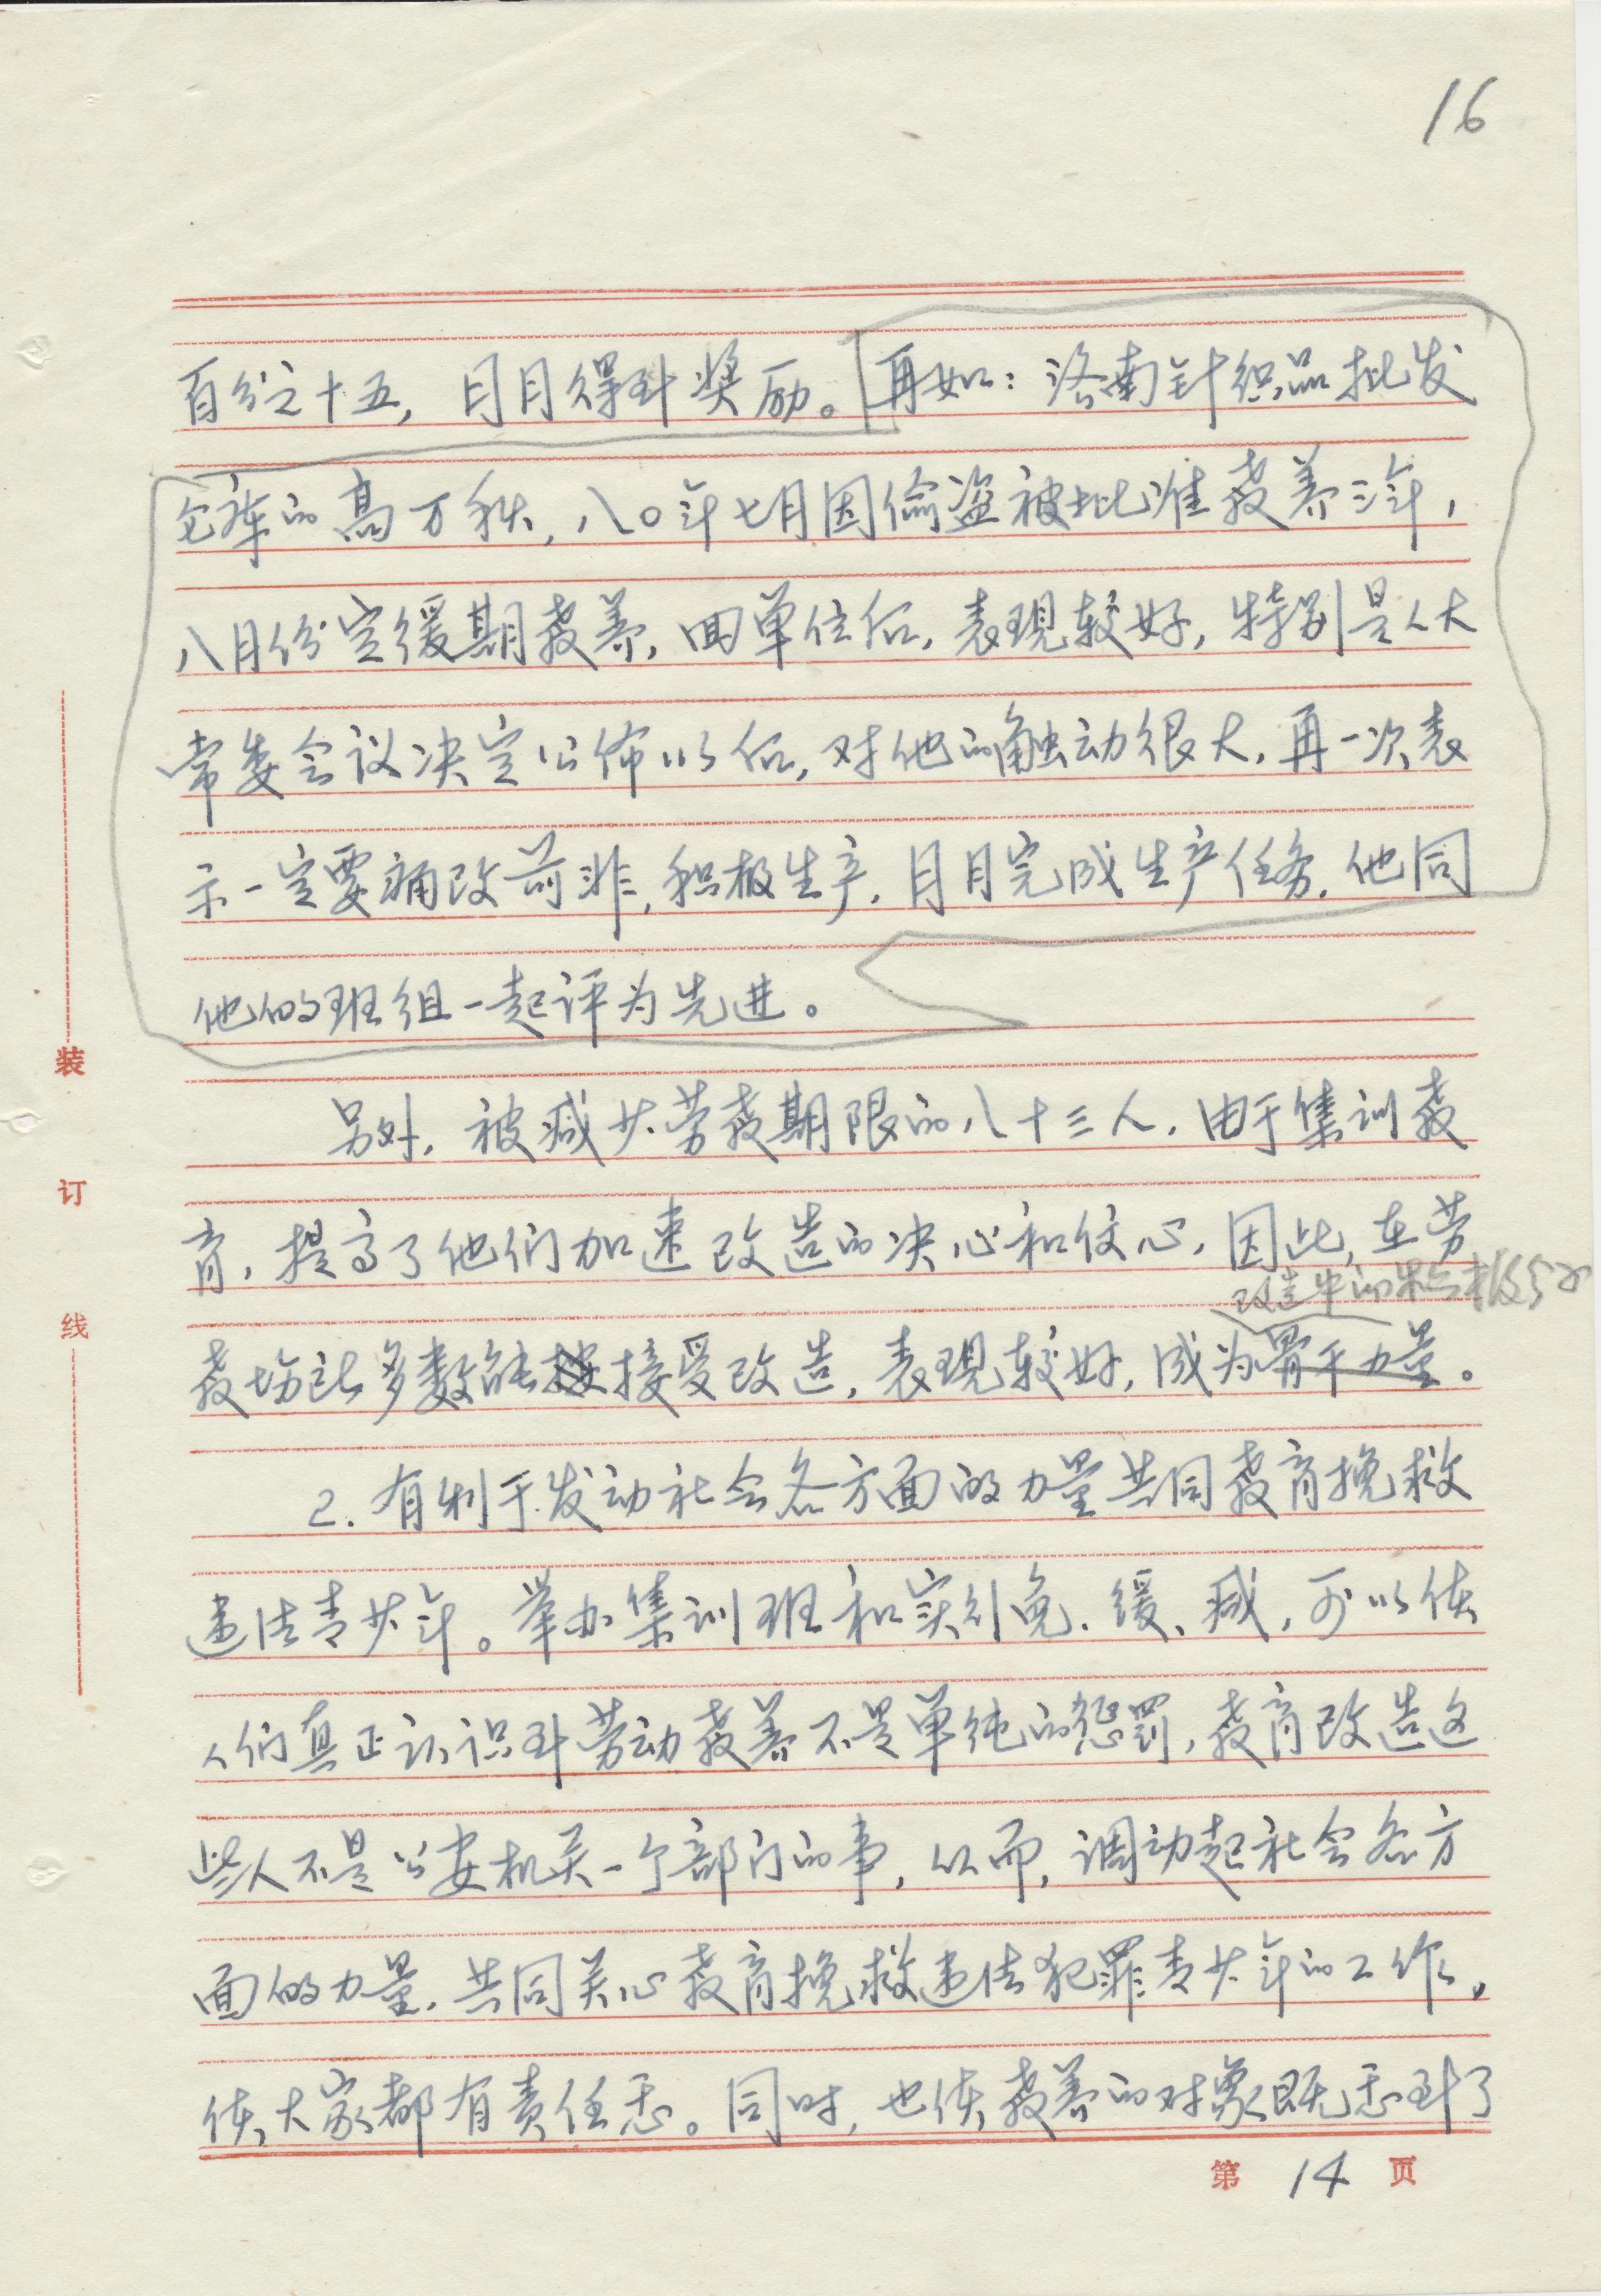 16
百分之十五，月月得到奖励。再如：洛南针织品批发
仓库的高万秋，八〇年七月因偷盗被批准教养三年，
八月份定缓期教养，回单位后，表现较好，特别是人大
常委会议决定公佈以后，对他的触动很大，再一次表
示一定要痛改前非，积极生产，月月完成生产任务，他同
他的班组一起评为先进。
另外，被减少劳教期限的八十三人，由于集训教
育，提高了他们加速改造的决心和信心，因此，在劳
改造中的积极分子
教场比多数能接受改造，表现较好，成为骨干力量。
2.有利于发动社会各方面的力量共同教育挽救
违法青少年。举办集训班和实行免、缓、减，可以使
人们真正认识到劳动教养不是单纯的惩罚，教育改造这
些人不是公安机关一个部门的事，从而，调动起社会各方
面的力量，共同关心教育挽救违法犯罪青少年的工作，
使大家都有责任感。同时，也使教养的对象既感到了
第 14 页
装
订
线